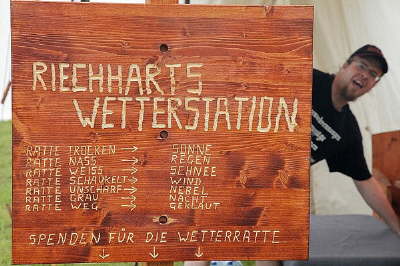 RIECHHARTS
WETTERSTATION
RATTE TROCKEN → SONNE
RATTE NASS → REGEN
RATTE WEISS → SCHNEE
RATTE SCHAUKELT → WIND
RATTE UNSCHARF → NEBEL
RATTE GRAU → NACHT
RATTE WEG → GEKLAUT
SPENDEN FÜR DIE WETTERRATTE
↓ ↓ ↓ ↓